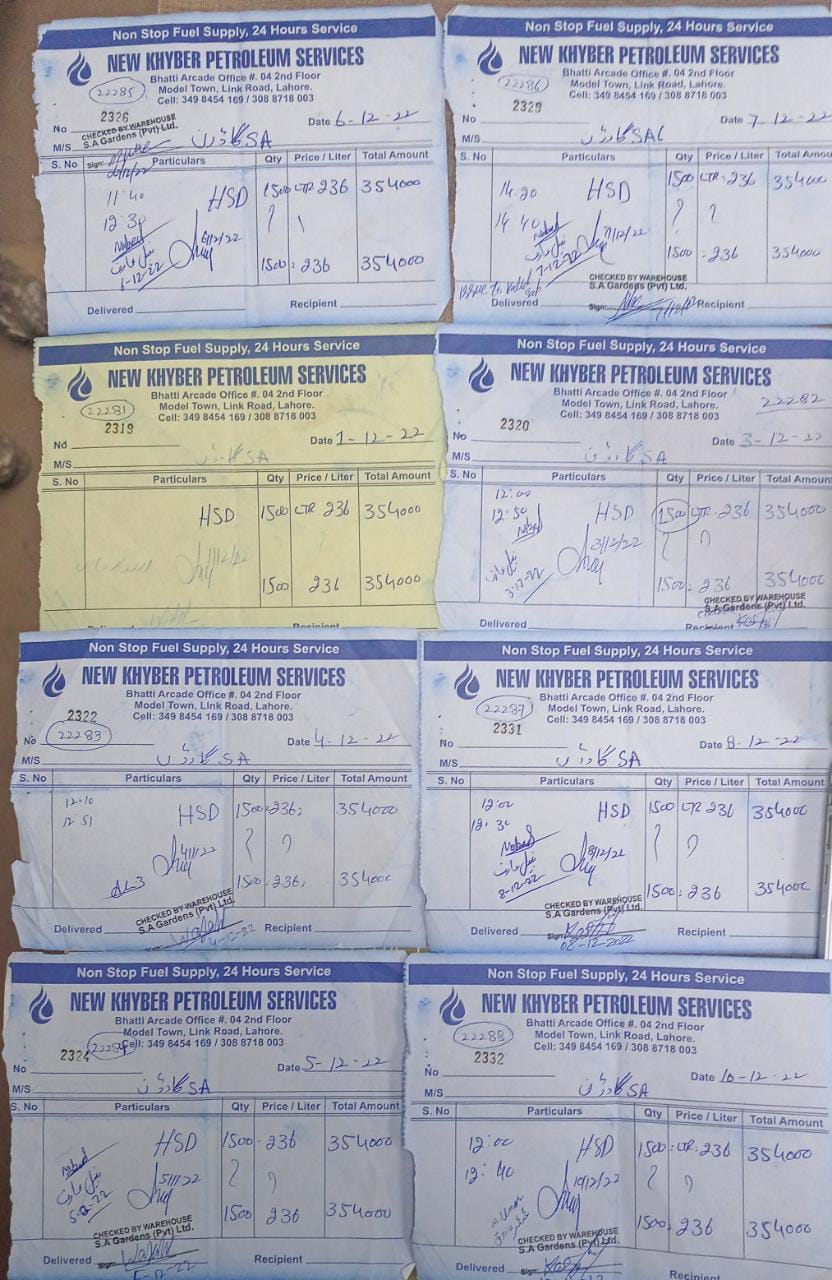 Non Stop Fuel Supply, 24 Hours Service
NEW KHYBER PETROLEUM SERVICES
Bhatti Arcade Office #. 04 2nd Floor
Model Town, Link Road, Lahore.
Cell: 349 8454 169 / 308 8718 003
22285
2326
No
Date 6-12-22
CHECKED BY WAREHOUSE
S.A Gardens (Pvt) Ltd.
M/S گارڈن SA
Sign:
S. No Particulars Qty Price / Liter Total Amount
11:40 HSD 1500 LTR 236 354000
12:30
6/12/22
6-12-22
1500: 236 354000
Delivered Recipient
Non Stop Fuel Supply, 24 Hours Service
NEW KHYBER PETROLEUM SERVICES
Bhatti Arcade Office #. 04 2nd Floor
Model Town, Link Road, Lahore.
Cell: 349 8454 169 / 308 8718 003
22286
2329
No
Date 7-12-22
M/S گارڈن SA
S. No Particulars Qty Price / Liter Total Amount
14.20 HSD 1500 LTR: 236 354000
14 40
7/12/22
7-12-22
1500 : 236 354000
CHECKED BY WAREHOUSE
S.A Gardens (Pvt) Ltd.
Delivered Sign: Recipient
Non Stop Fuel Supply, 24 Hours Service
NEW KHYBER PETROLEUM SERVICES
Bhatti Arcade Office #. 04 2nd Floor
Model Town, Link Road, Lahore.
Cell: 349 8454 169 / 308 8718 003
22281
2319
No
Date 1-12-22
M/S گارڈن SA
S. No Particulars Qty Price / Liter Total Amount
HSD 1500 LTR 236 354000
1/12/22
1500 236 354000
Recipient
Non Stop Fuel Supply, 24 Hours Service
NEW KHYBER PETROLEUM SERVICES
Bhatti Arcade Office #. 04 2nd Floor
Model Town, Link Road, Lahore.
Cell: 349 8454 169 / 308 8718 003
22282
2320
No
Date 3-12-22
M/S گارڈن SA
S. No Particulars Qty Price / Liter Total Amount
12:00
12:50 HSD 1500 LTR. 236 354000
3/12/22
3-12-22
1500: 236 354000
CHECKED BY WAREHOUSE
S.A Gardens (Pvt) Ltd.
Delivered Recipient
Non Stop Fuel Supply, 24 Hours Service
NEW KHYBER PETROLEUM SERVICES
Bhatti Arcade Office #. 04 2nd Floor
Model Town, Link Road, Lahore.
Cell: 349 8454 169 / 308 8718 003
2322
22283
No
Date 4-12-22
M/S گارڈن SA
S. No Particulars Qty Price / Liter Total Amount
12:10 HSD 1500: 236: 354000
12:51
1500: 236: 354000
CHECKED BY WAREHOUSE
S.A Gardens (Pvt) Ltd.
Delivered Sign: Recipient
4-12-22
Non Stop Fuel Supply, 24 Hours Service
NEW KHYBER PETROLEUM SERVICES
Bhatti Arcade Office #. 04 2nd Floor
Model Town, Link Road, Lahore.
Cell: 349 8454 169 / 308 8718 003
22287
2331
No
Date 8-12-22
M/S گارڈن SA
S. No Particulars Qty Price / Liter Total Amount
12:00 HSD 1500 LTR 236 354000
12:30
8/12/22
8-12-22
1500: 236 354000
CHECKED BY WAREHOUSE
S.A Gardens (Pvt) Ltd.
Delivered Sign: Recipient
08-12-2022
Non Stop Fuel Supply, 24 Hours Service
NEW KHYBER PETROLEUM SERVICES
Bhatti Arcade Office #. 04 2nd Floor
Model Town, Link Road, Lahore.
Cell: 349 8454 169 / 308 8718 003
2324
No
Date 5-12-22
M/S گارڈن SA
S. No Particulars Qty Price / Liter Total Amount
HSD 1500 - 236 354000
5-12-22
1500 236 354000
CHECKED BY WAREHOUSE
S.A Gardens (Pvt) Ltd.
Delivered Sign: Recipient
Non Stop Fuel Supply, 24 Hours Service
NEW KHYBER PETROLEUM SERVICES
Bhatti Arcade Office #. 04 2nd Floor
Model Town, Link Road, Lahore.
Cell: 349 8454 169 / 308 8718 003
22288
2332
No
Date 10-12-22
M/S گارڈن SA
S. No Particulars Qty Price / Liter Total Amount
12:00 HSD 1500: LTR: 236 354000
12:40
10/12/22
1500: 236 354000
CHECKED BY WAREHOUSE
S.A Gardens (Pvt) Ltd.
Delivered Sign: Recipient